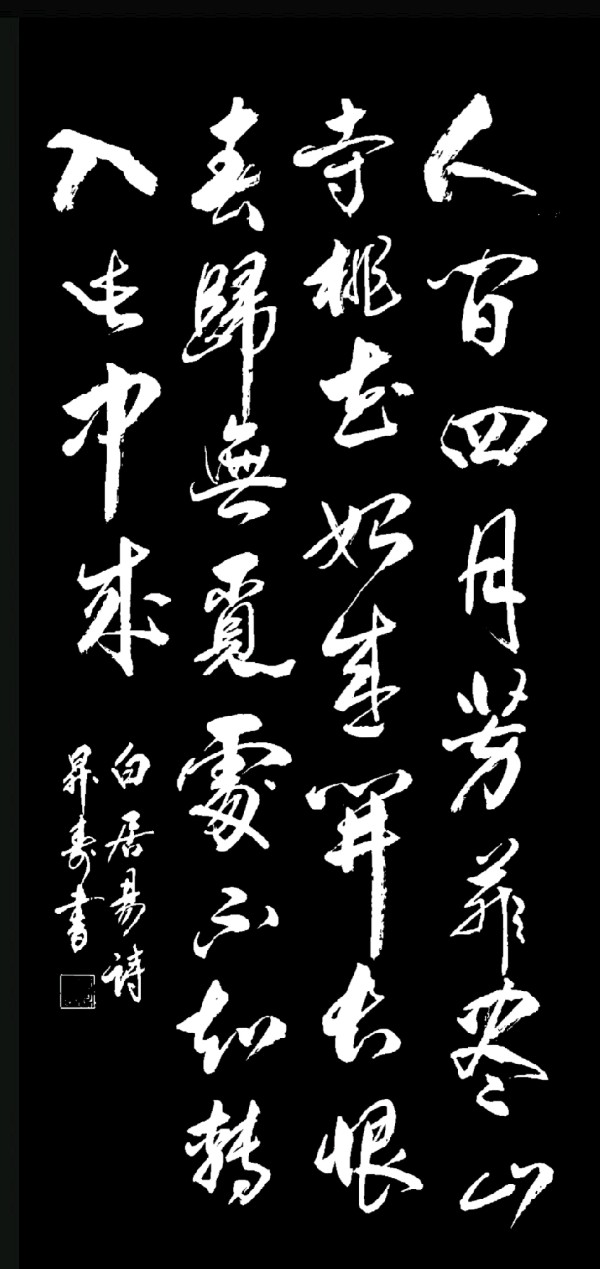 人間四月芳菲尽山
寺桃花始盛開長恨
春歸無覓處不知轉
入此中來
白居易詩
昇寿書